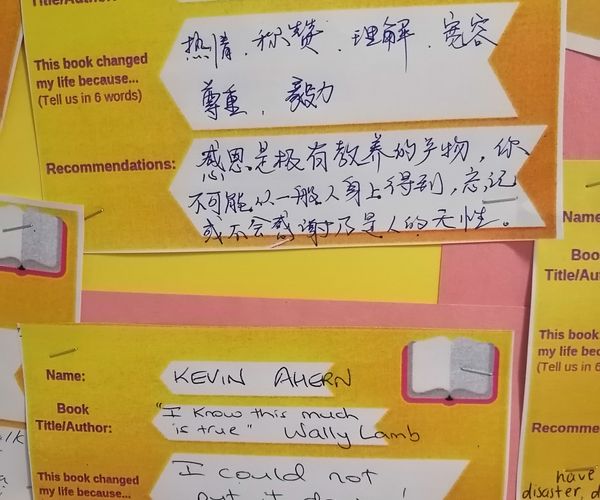 Title/Author:
This book changed
my life because...
(Tell us in 6 words)
热情、称赞、理解、宽容
尊重、毅力
Recommendations:
感恩是极有教养的产物，你
不可能从一般人身上得到，忘记
或不会感谢乃是人的天性。
Name:
KEVIN AHERN
Book
Title/Author:
"I know this much
is true" Wally Lamb
This book changed
my life because...
I could not
put it down
Name
Boo
Title/Au
This book
my life bec
(Tell us in 6
Recomme
have
disaster, d